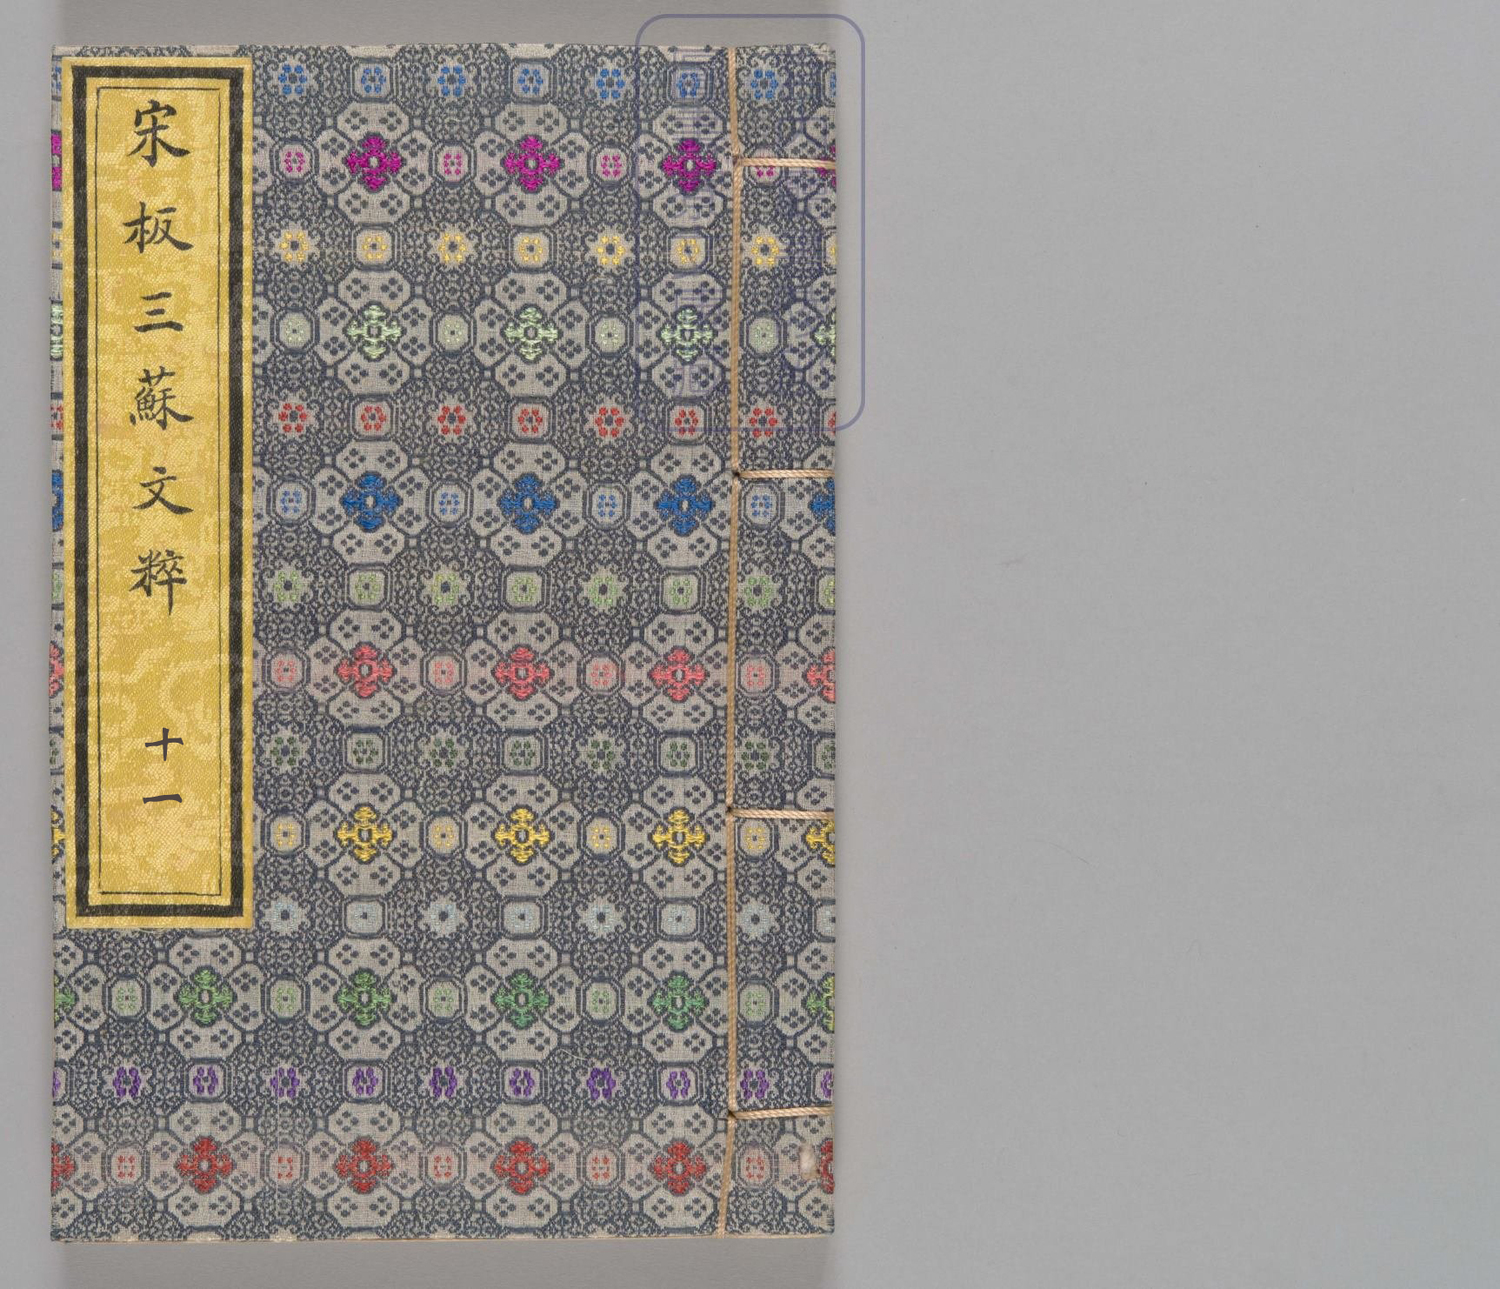 宋板三蘇文粹
十一